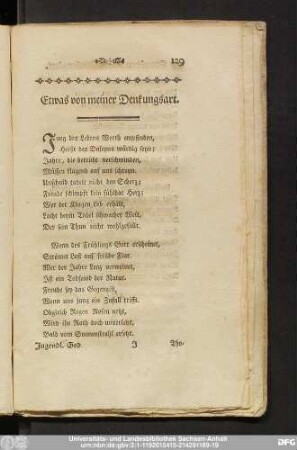 129
Etwas von meiner Denkungsart.
Jung des Lebens Werth empfinden,
Heißt des Daseyns würdig seyn;
Jahre, die betrübt verschwinden,
Müssen klagend auf uns schreyn.
Unschuld tadelt nicht den Scherz;
Freude schimpft kein fühlbar Herz;
Wer der Klugen Lob erhält,
Lacht beym Tadel schwacher Welt,
Der sein Thun nicht wohlgefällt.
Wenn des Frühlings Gott erscheinet,
Strömet Lust auf frische Flur.
Wer der Jahre Lenz verweinet,
Ist ein Todfeind der Natur.
Freude sey das Gegengift,
Wenn uns jung ein Zufall trifft.
Obgleich Regen Rosen netzt,
Wird ihr Roth doch unverletzt,
Bald vom Sonnenstrahl ersetzt.
Jugendl. Ged. J Tho-
Universitäts- und Landesbibliothek Sachsen-Anhalt
urn:nbn:de:gbv:3:1-1192015415-214291189-19
DFG